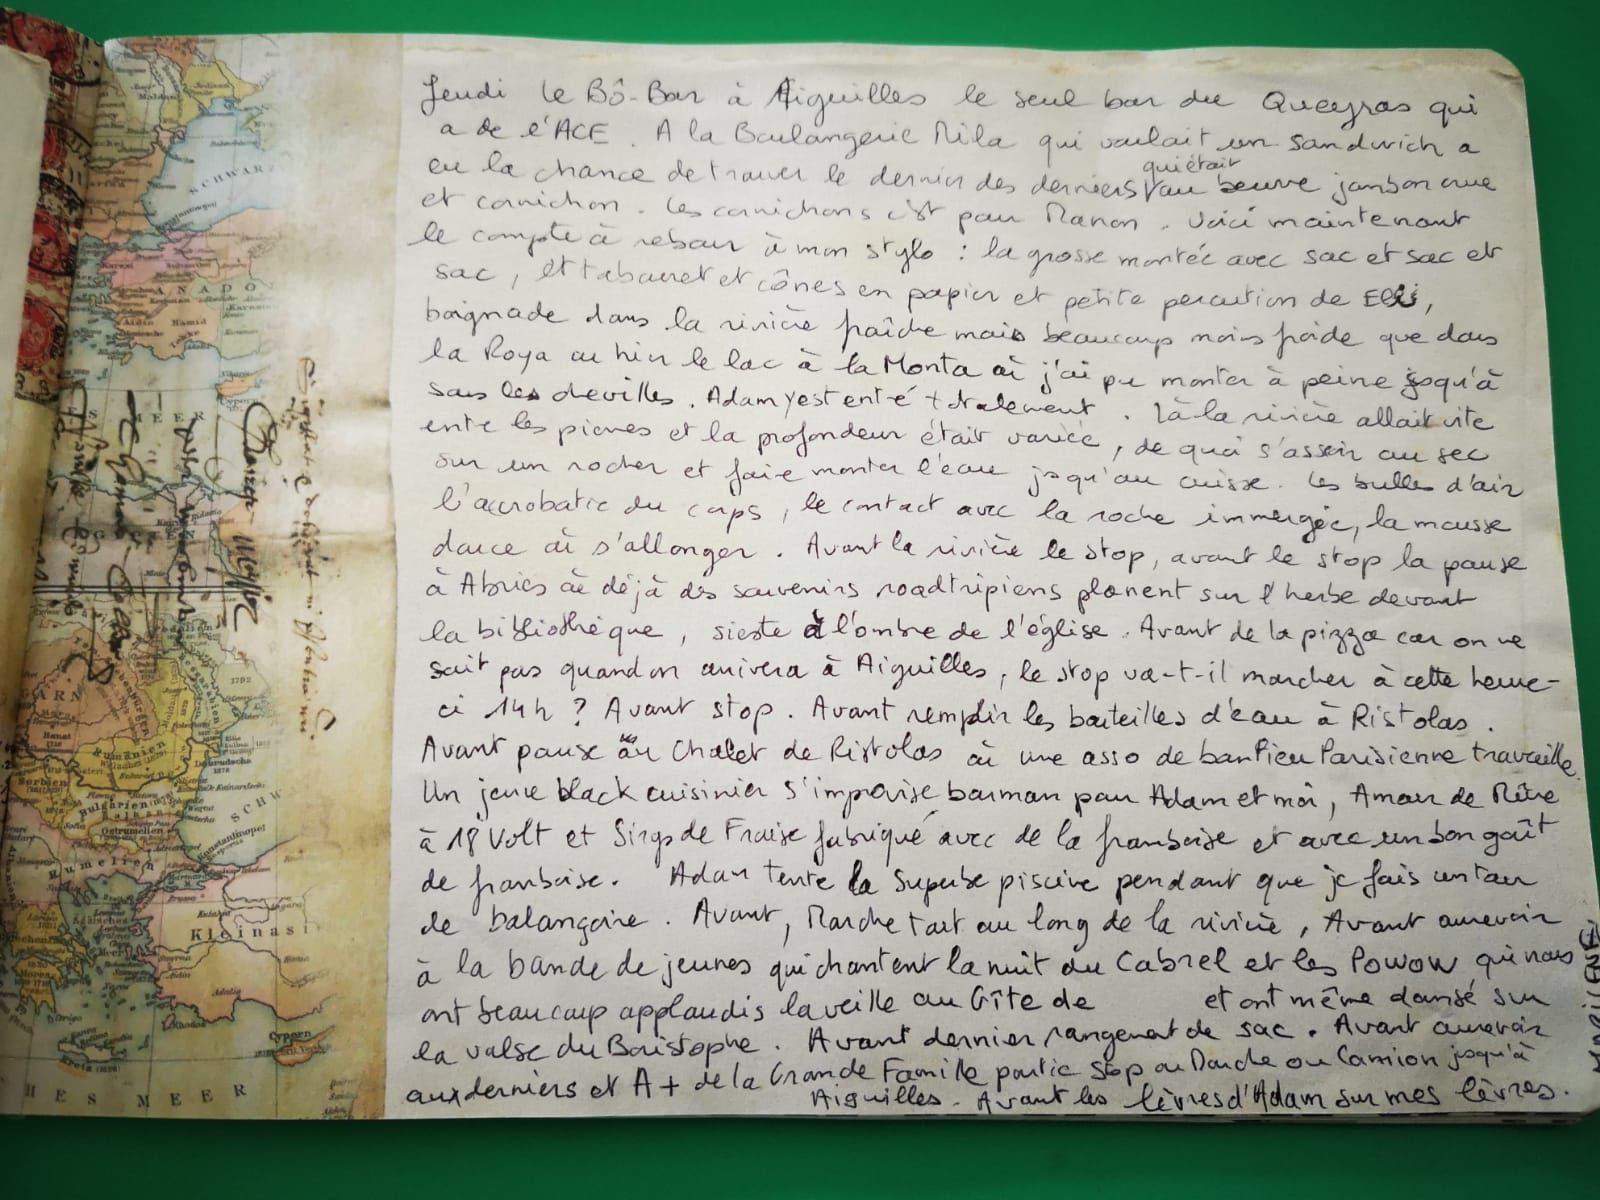 Jeudi Le Bô-Bar à Aiguilles le seul bar du Queyras qui
a de l'ACE. A la Boulangerie Mila qui voulait un sandwich a
eu la chance de trouver le dernier des derniers qui était au beurre jambon crue
et cornichon. Les cornichons c'est pour Manon. Voici maintenant
le compte à rebour à mon stylo : la grosse montée avec sac et sac et
sac, et tabouret et cônes en papier et petite percution de Elli,
baignade dans la rivière fraîche mais beaucoup moins froide que dans
la Roya ou hier le lac à la Monta où j'ai pu monter à peine jsqu'à
sous les chevilles. Adam y est entré totalement. Là la rivière allait vite
entre les pierres et la profondeur était variée, de quoi s'assoir au sec
sur un rocher et faire monter l'eau jsqu'au cuisse. Les bulles d'air
l'accrobatie du corps, le contact avec la roche immergée, la mousse
douce où s'allonger. Avant la rivière le stop, avant le stop la pause
à Abries où déjà des souvenirs roadtripiens planent sur l'herbe devant
la bibliothèque, sieste à l'ombre de l'église. Avant de la pizza car on ne
sait pas quand on arrivera à Aiguilles, le stop va-t-il marcher à cette heure-
ci 14h ? Avant stop. Avant remplir les bouteilles d'eau à Ristolas.
Avant pause au Chalet de Ristolas où une asso de banlieu Parisienne travaille.
Un jeune black cuisinier s'improvise barman pour Adam et moi, Amour de Mûre
à 18 Volt et Sirop de Fraise fabriqué avec de la framboise et avec un bon goût
de framboise. Adam tente la superbe piscine pendant que je fais un tour
de balançoire. Avant, Marche tout au long de la rivière, Avant aurevoir
à la bande de jeunes qui chantent la nuit du Cabrel et les Powow qui nous
ont beaucoup applaudis la veille au Gîte de et ont même dansé sur
la valse du Boristophe. Avant dernier rangement de sac. Avant aurevoir
aux derniers et A+ de la Grande Famille partie Stop ou Marche ou Camion jusqu'à
Aiguilles. Avant les lèvres d'Adam sur mes lèvres.
SCHWARZ
ANADO
MEER
Rumänien
Bulgarien
Ostrumelien
Rumelien
Constantinopel
Kleinasi
Cypern
HES MEER